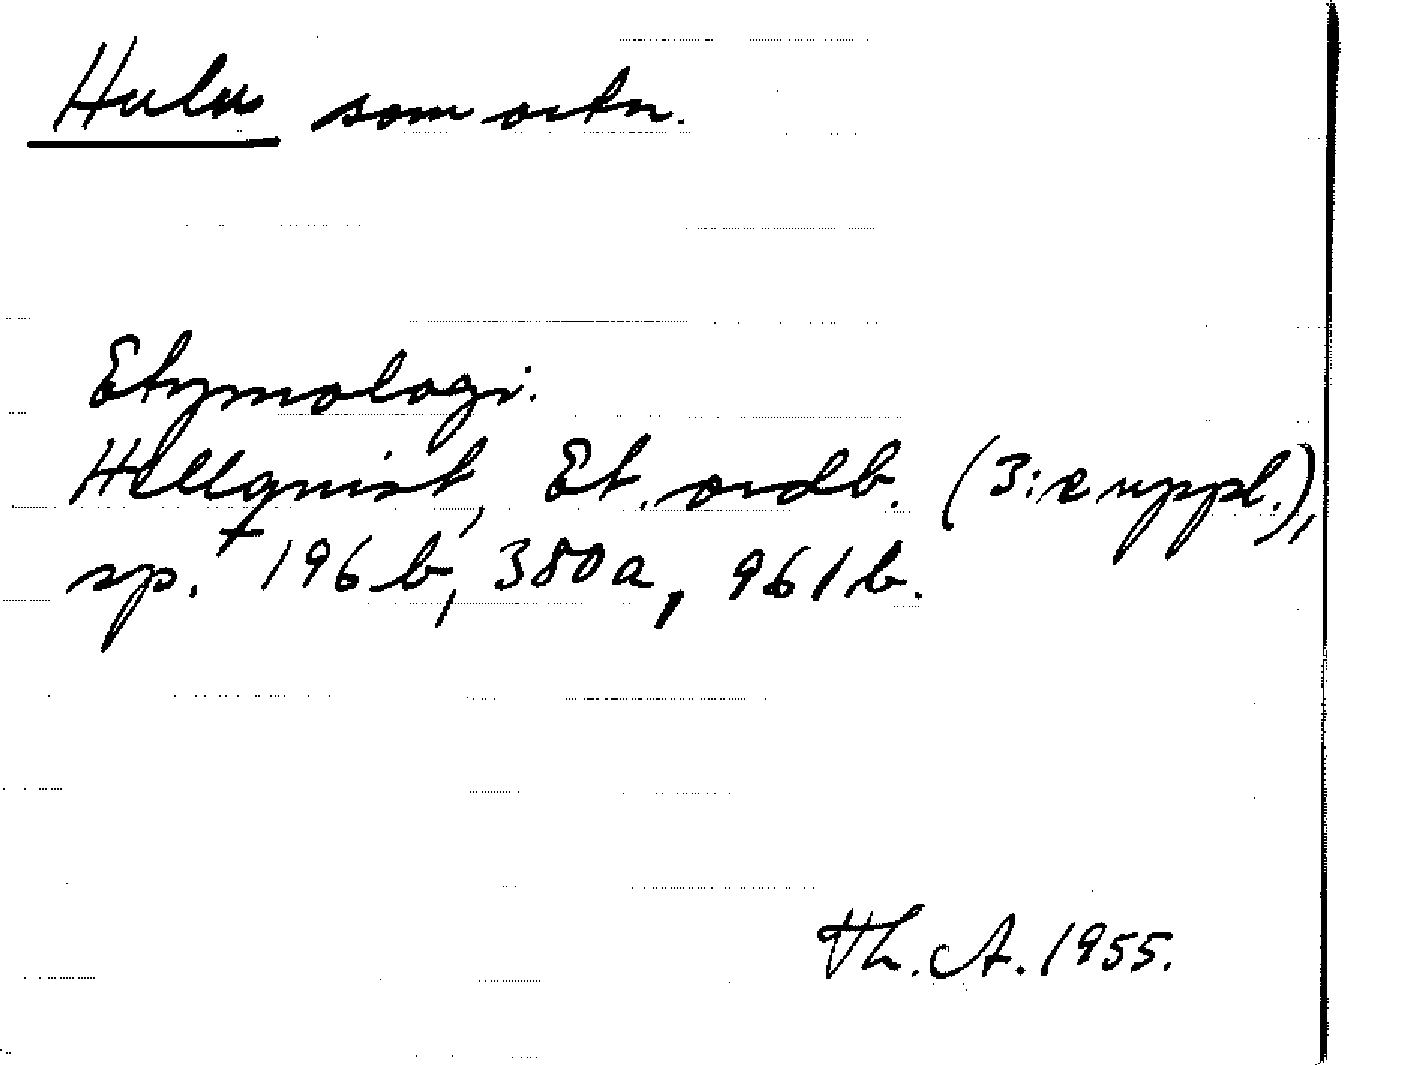 Hulu som ortn.
Etymologi.
Hellquist, Et. ordb. (3:e uppl.),
sp. 196 b, 380a, 961b.
Th. A. 1955.